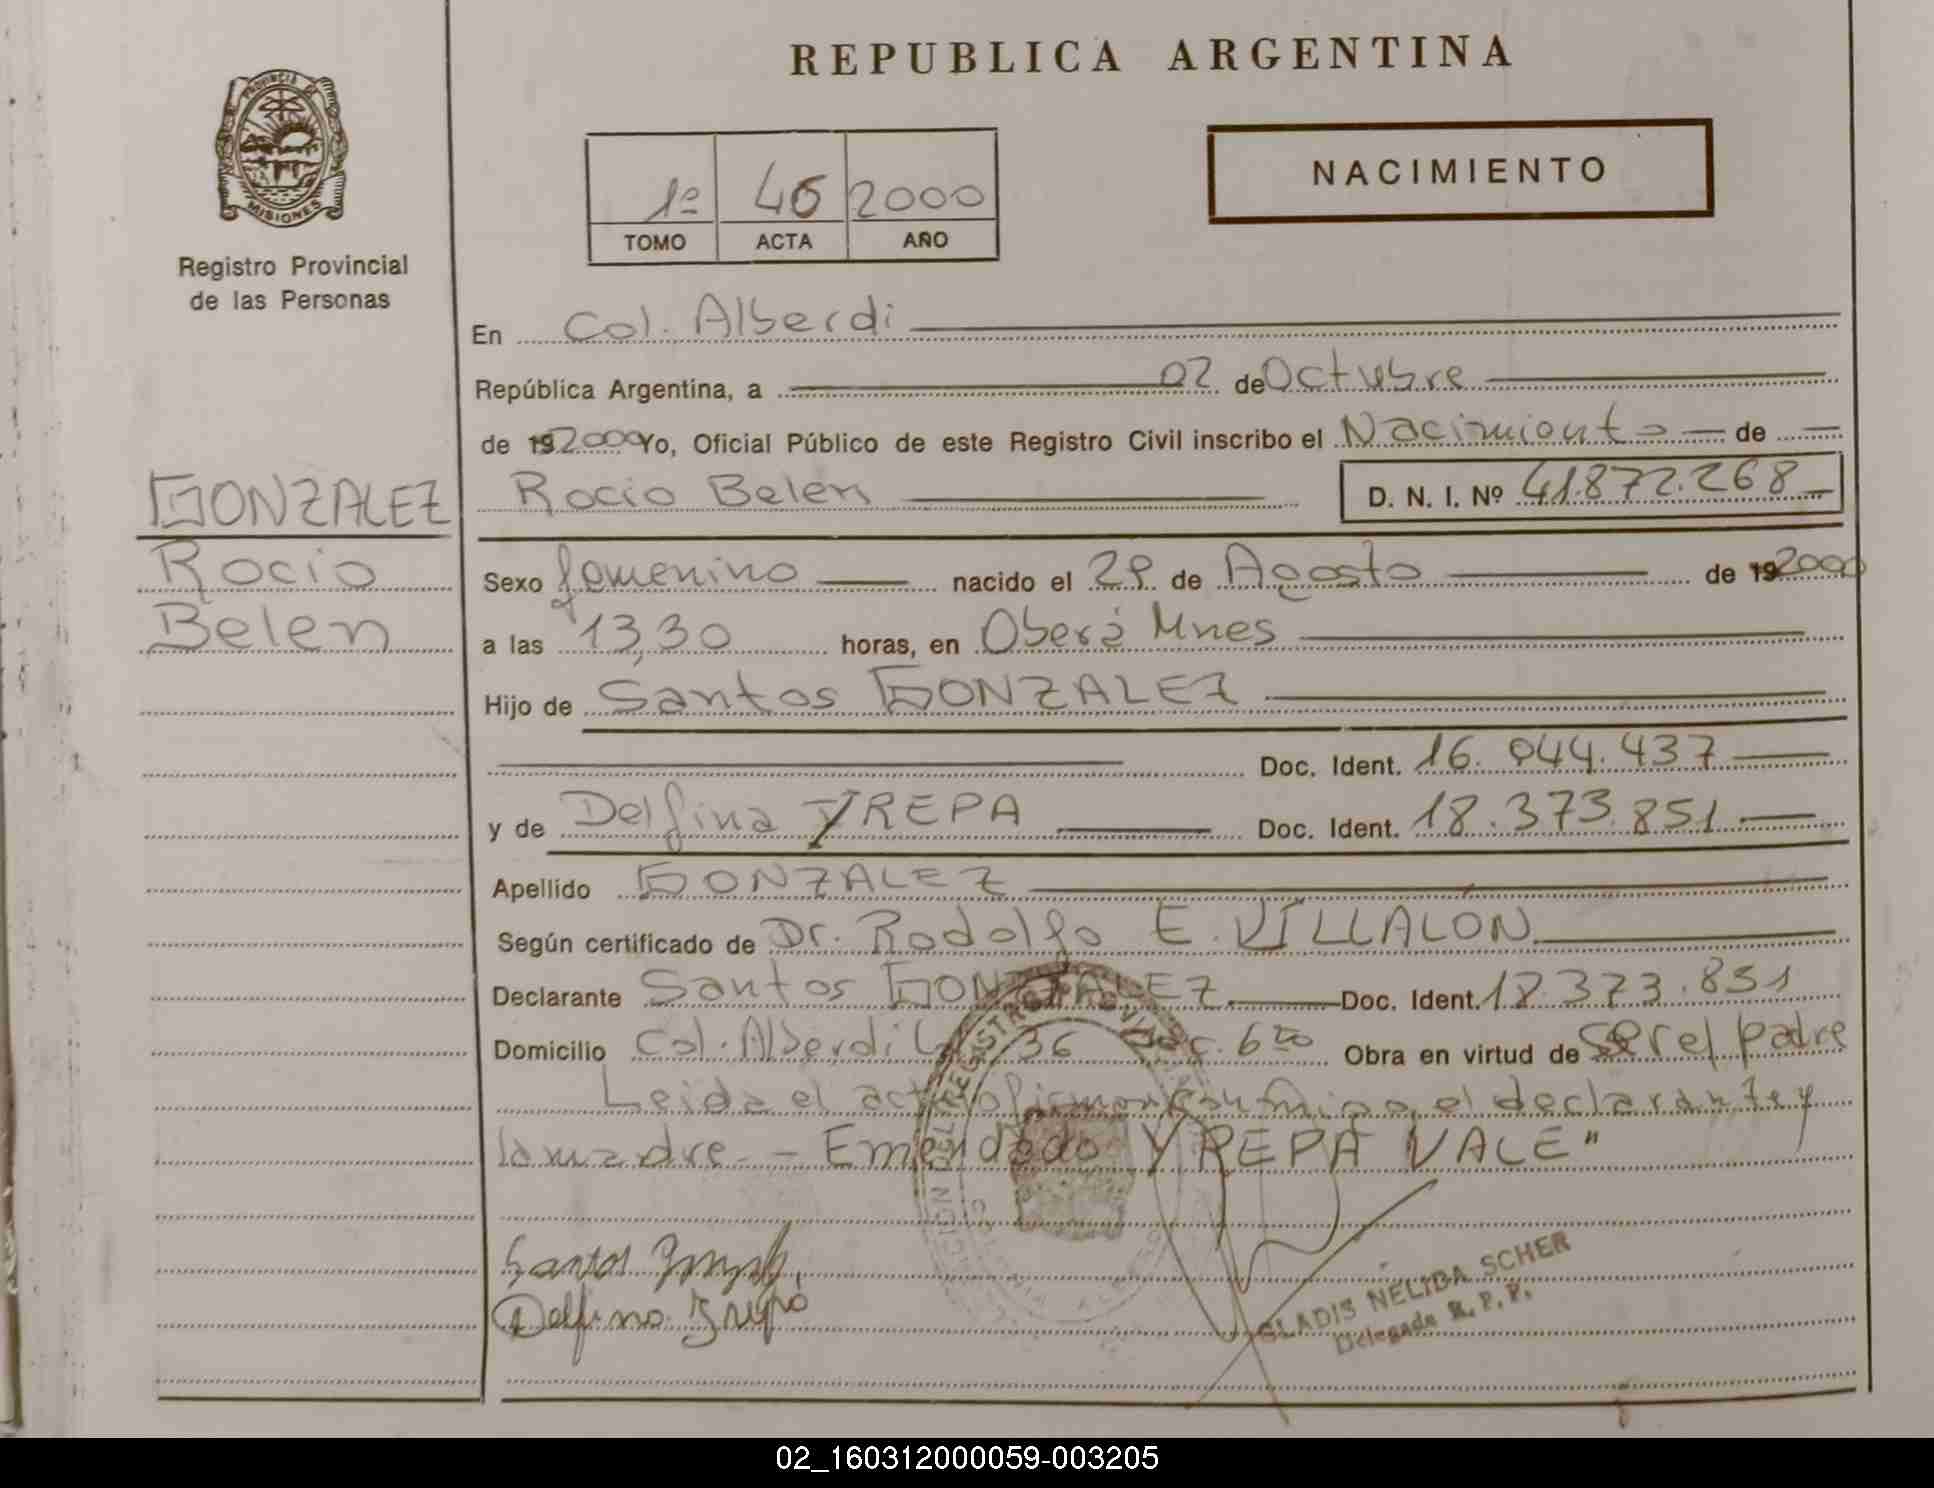 REPUBLICA ARGENTINA
PROVINCIA DE
MISIONES
Registro Provincial
de las Personas
1º 46 2000
TOMO ACTA AÑO
NACIMIENTO
En Col. Alberdi
República Argentina, a 02 de Octubre
de 192000 Yo, Oficial Público de este Registro Civil inscribo el Nacimiento de
Rocio Belen D. N. I. Nº 41.872.268
GONZALEZ
Rocio
Belen
Sexo femenino nacido el 29 de Agosto de 192000
a las 13,30 horas, en Oberá Mnes
Hijo de Santos GONZALEZ
Doc. Ident. 16.044.437
y de Delfina YREPA Doc. Ident. 18.373.851
Apellido GONZALEZ
Según certificado de Dr. Rodolfo E. VILLALON
Declarante Santos GONZALEZ Doc. Ident. 18.373.851
Domicilio Col. Alberdi 36 Sec. 6ta Obra en virtud de ser el padre
Leida el acta firman conmigo el declarante y
la madre. - Emendado YREPA VALE"
Santos
Delfina
GLADIS NELIDA SCHER
Delegada R. P. P.
02_160312000059-003205